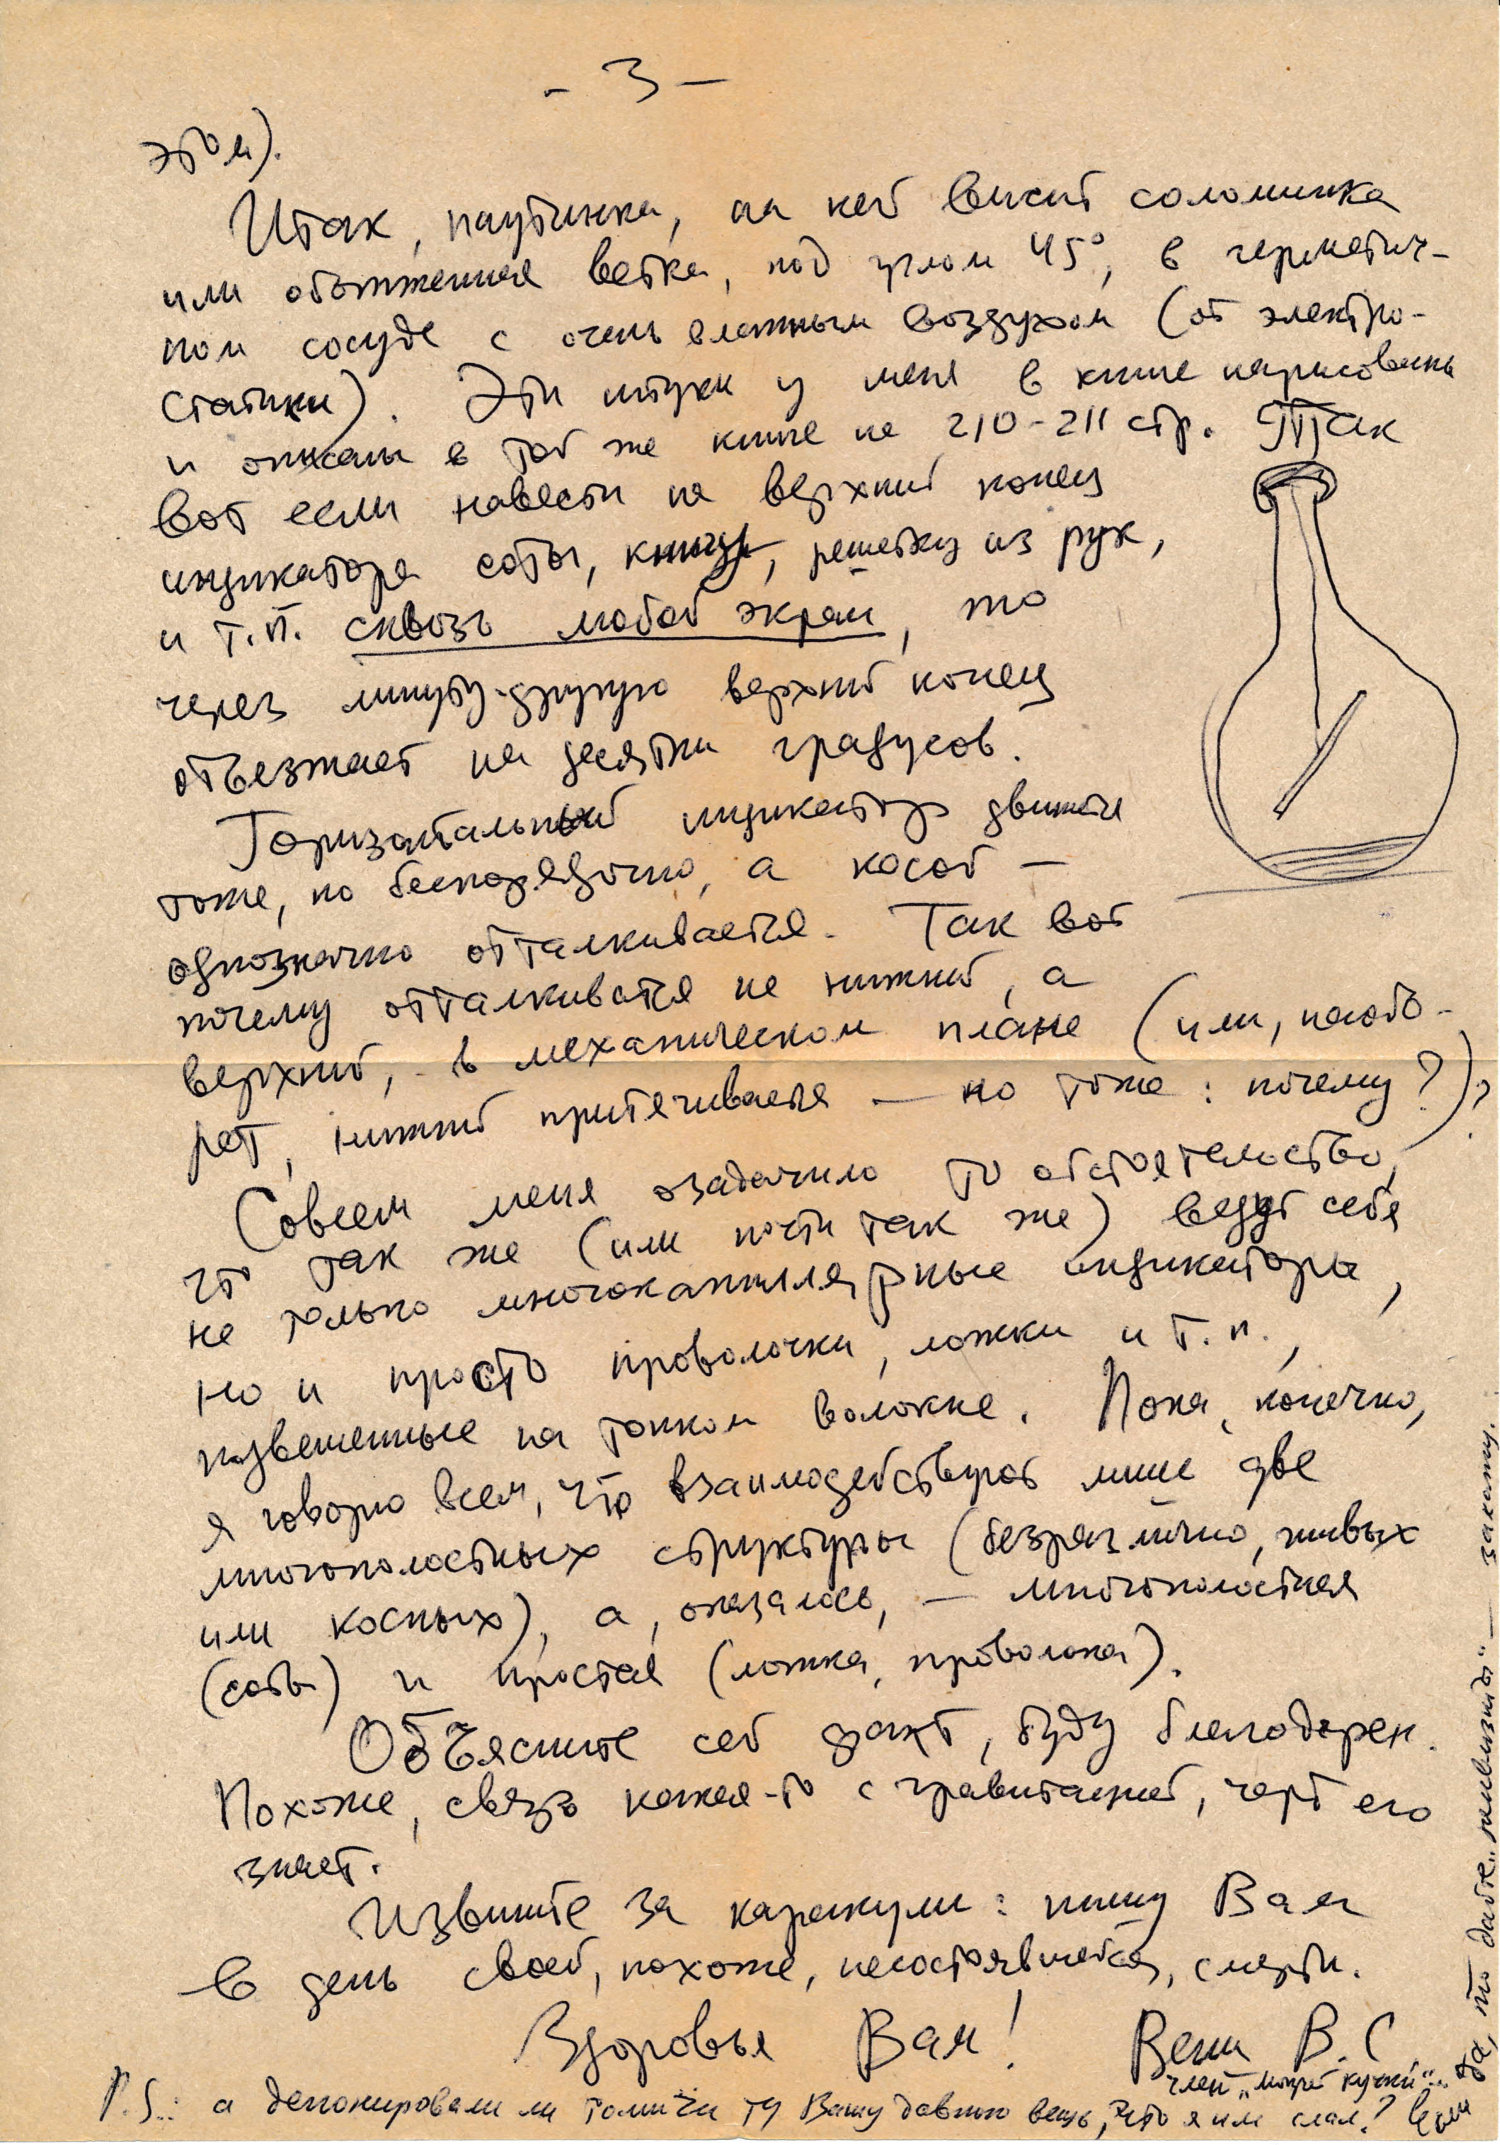 - 3 -
этом).
Итак, паутинка, на ней висит соломинка
или обожженная ветка, под углом 45°, в герметич-
ном сосуде с очень влажным воздухом (от электро-
статики). Эти штуки у меня в книге нарисованы
и описаны в той же книге на 210-211 стр. Так
вот если навести на верхний конец
индикатора соты, книгу, решетку из рук,
и т.п. сквозь любой экран, то
через минуту-другую верхний конец
отъезжает на десятки градусов.
Горизонтальный индикатор движется
тоже, но беспорядочно, а косой —
однозначно отталкивается. Так вот
почему отталкивается не нижний, а
верхний, в механическом плане (или, наобо-
рот, нижний притягивается — но тоже: почему?)?
Совсем меня озадачило то обстоятельство,
что так же (или почти так же) ведут себя
не только многокапиллярные индикаторы,
но и просто проволочки, ложки и т.п.,
подвешенные на тонком волокне. Пока, конечно,
я говорю всем, что взаимодействуют лишь две
многополостных структуры (безразлично, живых
или косных), а, оказалось, — многополостная
(соты) и простая (ложка, проволока).
Объясните сей факт, буду благодарен.
Похоже, связь какая-то с гравитацией, черт его
знает.
Извините за каракули: пишу Вам
в день своей, похоже, несостоявшейся, смерти.
Здоровья Вам! Ваш В.С
член „могучей кучки“...
P.S.: а депонировали ли томичи ту Вашу давнюю вещь, что я им слал? Если
да, то дайте „ — закажу.